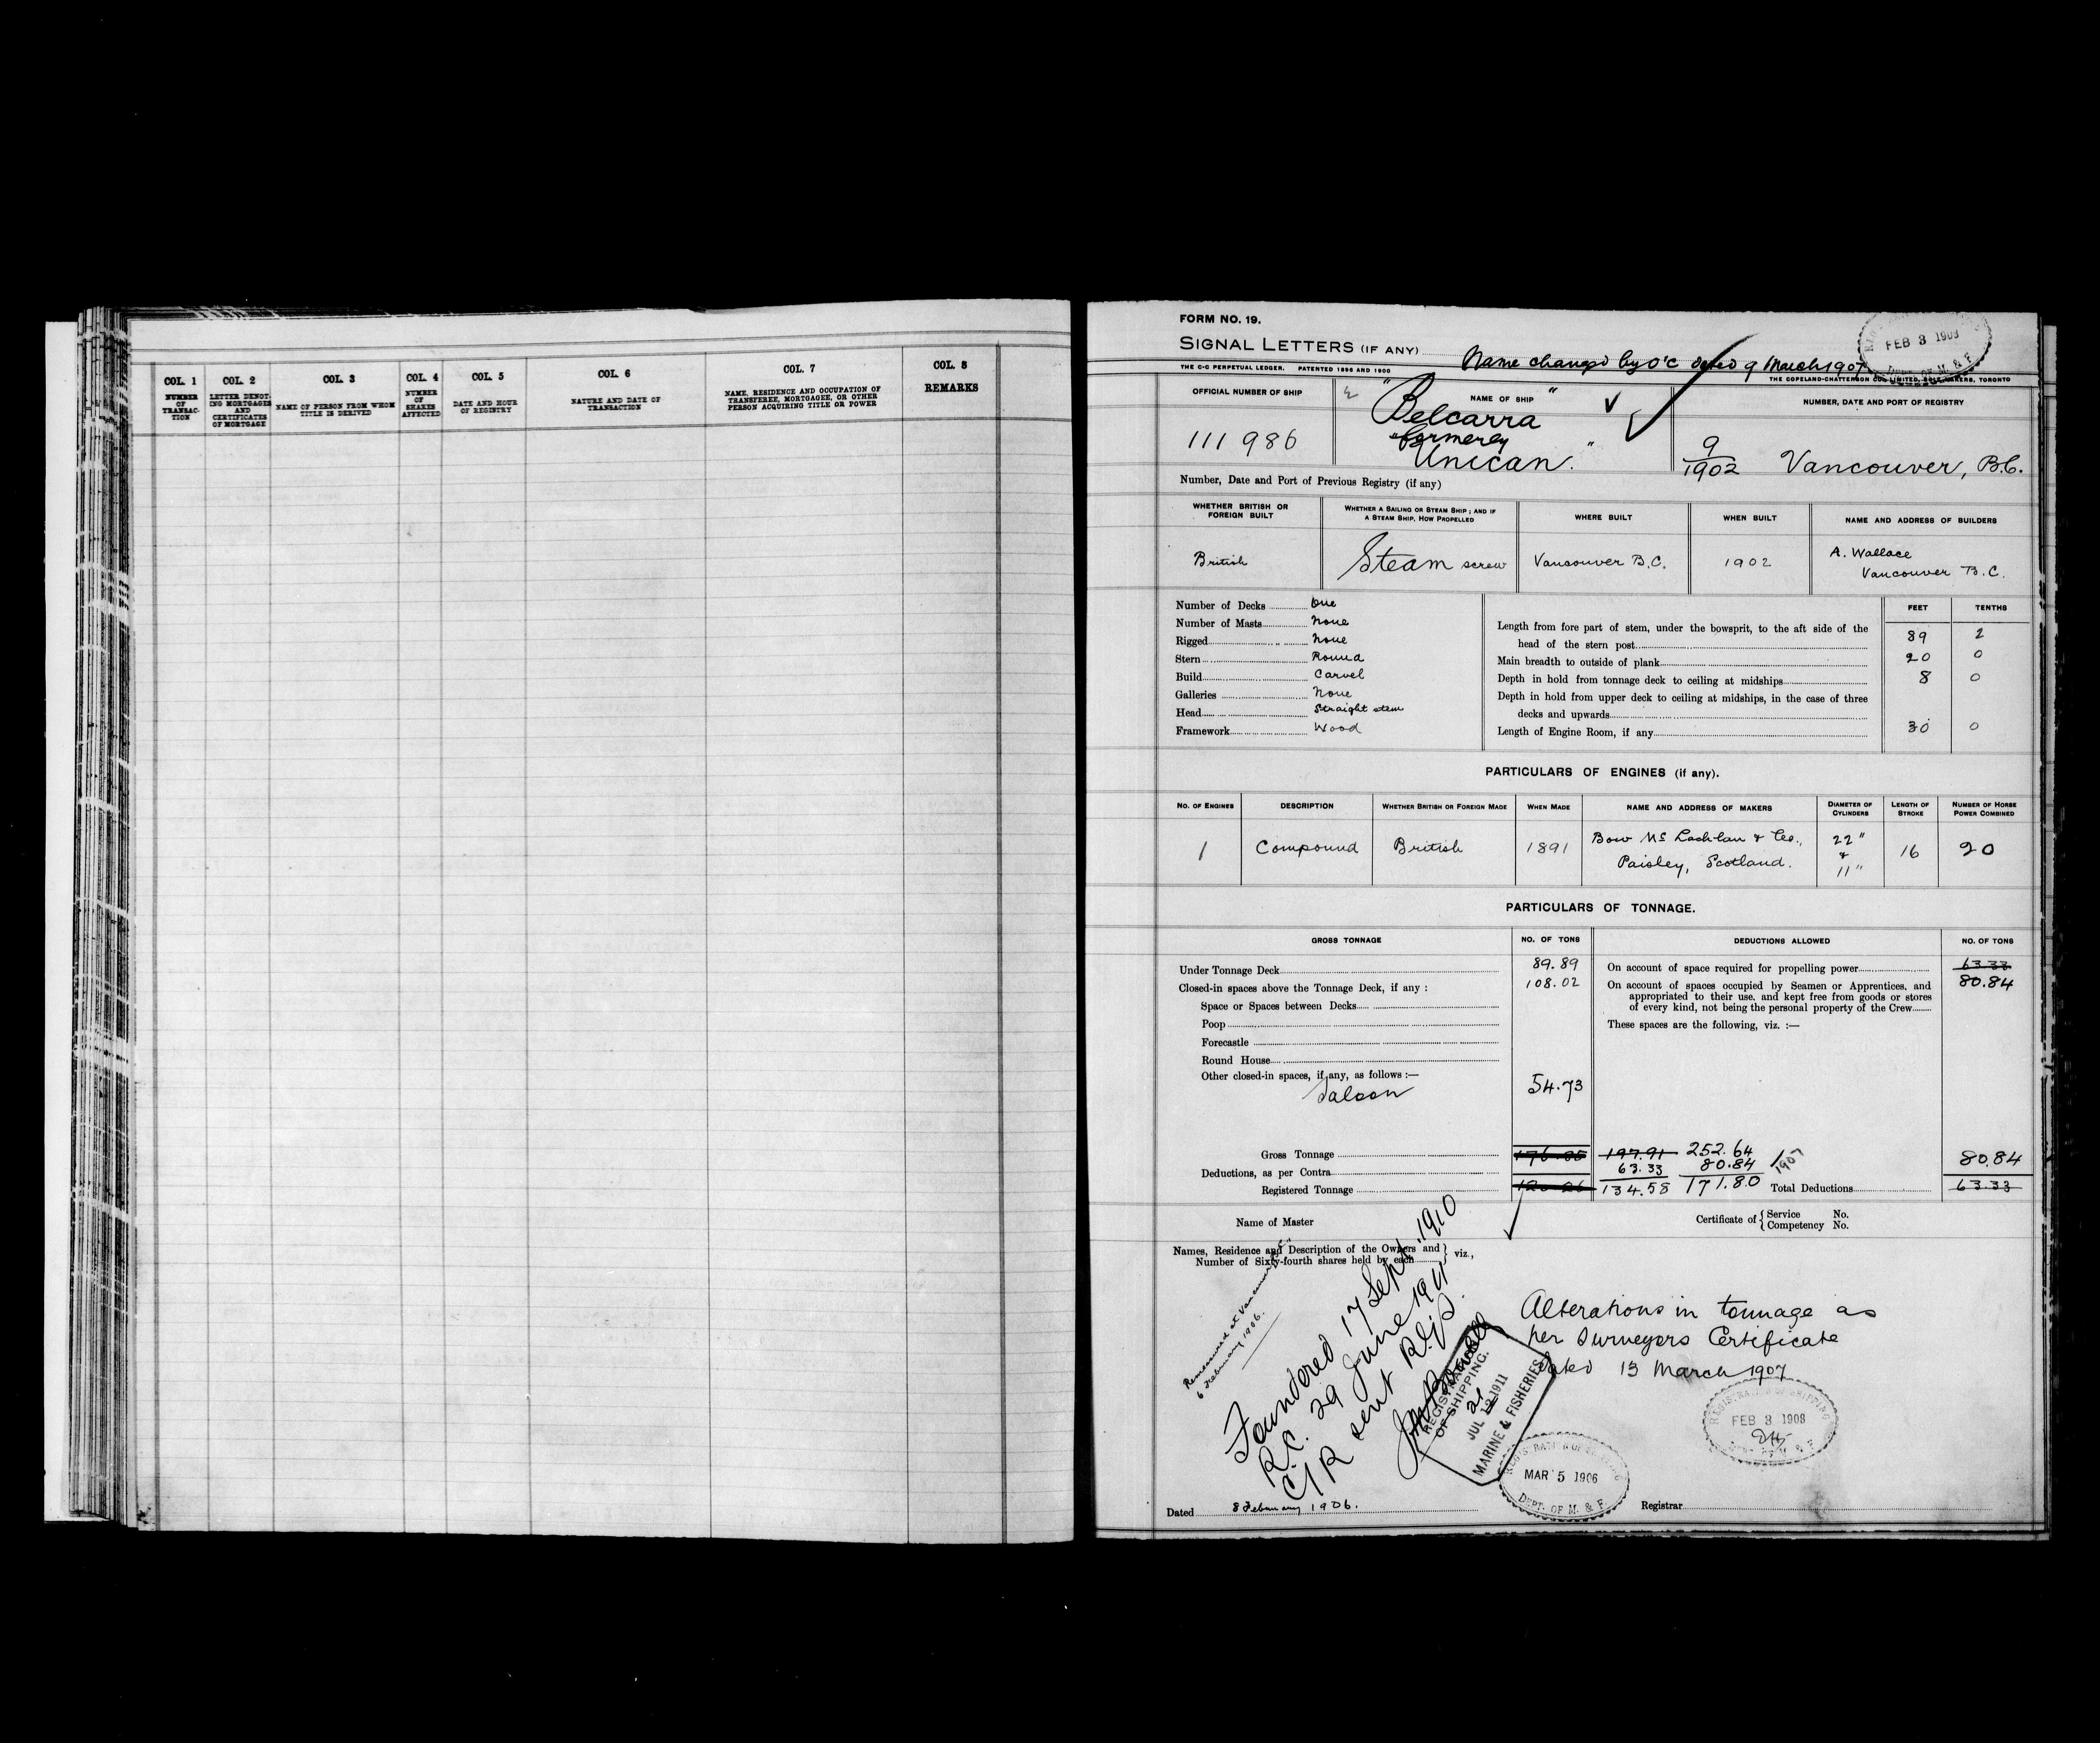 COL. 1
NUMBER
OF
TRANSAC-
TION
COL. 2
LETTER DENOT-
ING MORTGAGES
AND
CERTIFICATES
OF MORTGAGE
COL. 3
NAME OF PERSON FROM WHOM
TITLE IS DERIVED
COL. 4
NUMBER
OF
SHARES
AFFECTED
COL. 5
DATE AND HOUR
OF REGISTRY
COL. 6
NATURE AND DATE OF
TRANSACTION
COL. 7
NAME, RESIDENCE AND OCCUPATION OF
TRANSFEREE, MORTGAGEE, OR OTHER
PERSON ACQUIRING TITLE OR POWER
COL. 8
REMARKS
FORM NO. 19.
SIGNAL LETTERS (IF ANY)
Name changed by O'C dated 9 March 1907
FEB 3 1908
DEPT. OF M. & F.
THE C-C PERPETUAL LEDGER. PATENTED 1896 AND 1900
THE COPELAND-CHATTERSON CO., LIMITED, SOLE MAKERS, TORONTO
OFFICIAL NUMBER OF SHIP
111 986
NAME OF SHIP
"Belcarra"
formerly
"Unican."
NUMBER, DATE AND PORT OF REGISTRY
9/1902 Vancouver, B.C.
Number, Date and Port of Previous Registry (if any)
WHETHER BRITISH OR
FOREIGN BUILT
British
WHETHER A SAILING OR STEAM SHIP; AND IF
A STEAM SHIP, HOW PROPELLED
Steam screw
WHERE BUILT
Vancouver B.C.
WHEN BUILT
1902
NAME AND ADDRESS OF BUILDERS
A. Wallace
Vancouver B.C.
Number of Decks One
Number of Masts None
Rigged None
Stern Round
Build Carvel
Galleries None
Head Straight stem
Framework Wood
FEET TENTHS
Length from fore part of stem, under the bowsprit, to the aft side of the
head of the stern post 89 2
Main breadth to outside of plank 20 0
Depth in hold from tonnage deck to ceiling at midships 8 0
Depth in hold from upper deck to ceiling at midships, in the case of three
decks and upwards
Length of Engine Room, if any 30 0
PARTICULARS OF ENGINES (if any).
NO. OF ENGINES
1
DESCRIPTION
Compound
WHETHER BRITISH OR FOREIGN MADE
British
WHEN MADE
1891
NAME AND ADDRESS OF MAKERS
Bow McLachlan & Co.,
Paisley, Scotland.
DIAMETER OF
CYLINDERS
22"
&
11"
LENGTH OF
STROKE
16
NUMBER OF HORSE
POWER COMBINED
20
PARTICULARS OF TONNAGE.
GROSS TONNAGE NO. OF TONS
Under Tonnage Deck 89.89
Closed-in spaces above the Tonnage Deck, if any : 108.02
Space or Spaces between Decks
Poop
Forecastle
Round House
Other closed-in spaces, if any, as follows :—
Saloon 54.73
Gross Tonnage 197.91 252.64
Deductions, as per Contra 63.33 80.84 1907
Registered Tonnage 134.58 171.80
DEDUCTIONS ALLOWED NO. OF TONS
On account of space required for propelling power 63.33
80.84
On account of spaces occupied by Seamen or Apprentices, and
appropriated to their use, and kept free from goods or stores
of every kind, not being the personal property of the Crew
These spaces are the following, viz. :—
80.84
Total Deductions 63.33
Name of Master
Certificate of { Service No.
Competency No.
Names, Residence and Description of the Owners and
Number of Sixty-fourth shares held by each } viz.,
Remeasured at Vancouver B.C.
6 February 1906.
Foundered 17 Sept. 1910
R.C. 29 June 1911
C/R sent R.G.S.
REGISTRAR
OF SHIPPING.
JUL 1911
MARINE & FISHERIES
Alterations in tonnage as
per Surveyors Certificate
dated 13 March 1907
REGISTRATION OF SHIPPING
FEB 3 1908
DEPT. OF M. & F.
MAR 5 1906
DEPT. OF M. & F.
Dated 8 February 1906.
Registrar